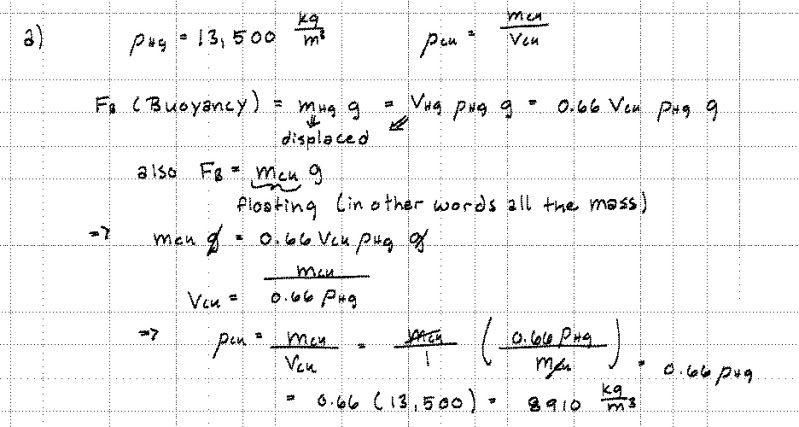 a) ρHg = 13,500 kg/m³ ρcu = mcu/Vcu
FB (Buoyancy) = mHg g = VHg ρHg g = 0.66 Vcu ρHg g
displaced
also FB = mcu g
floating (in other words all the mass)
=> mcu g = 0.66 Vcu ρHg g
Vcu = mcu / 0.66 ρHg
=> ρcu = mcu/Vcu = mcu/1 (0.66 ρHg / mcu) = 0.66 ρHg
= 0.66 (13,500) = 8910 kg/m³